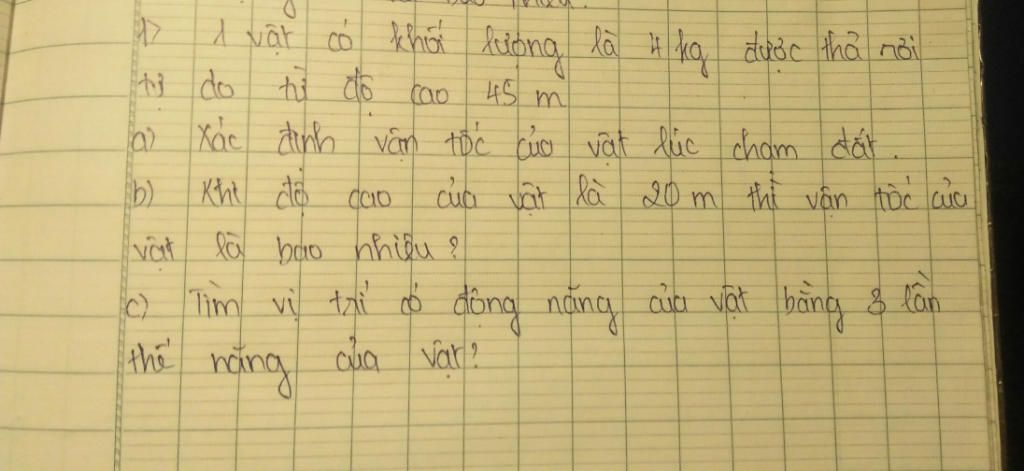 1) 1 vật có khối lượng là 4 kg được thả rơi
tự do từ độ cao 45 m
a) Xác định vận tốc của vật lúc chạm đất.
b) Khi độ cao của vật là 20 m thì vận tốc của
vật là bao nhiêu?
c) Tìm vị trí có động năng của vật bằng 3 lần
thế năng của vật?